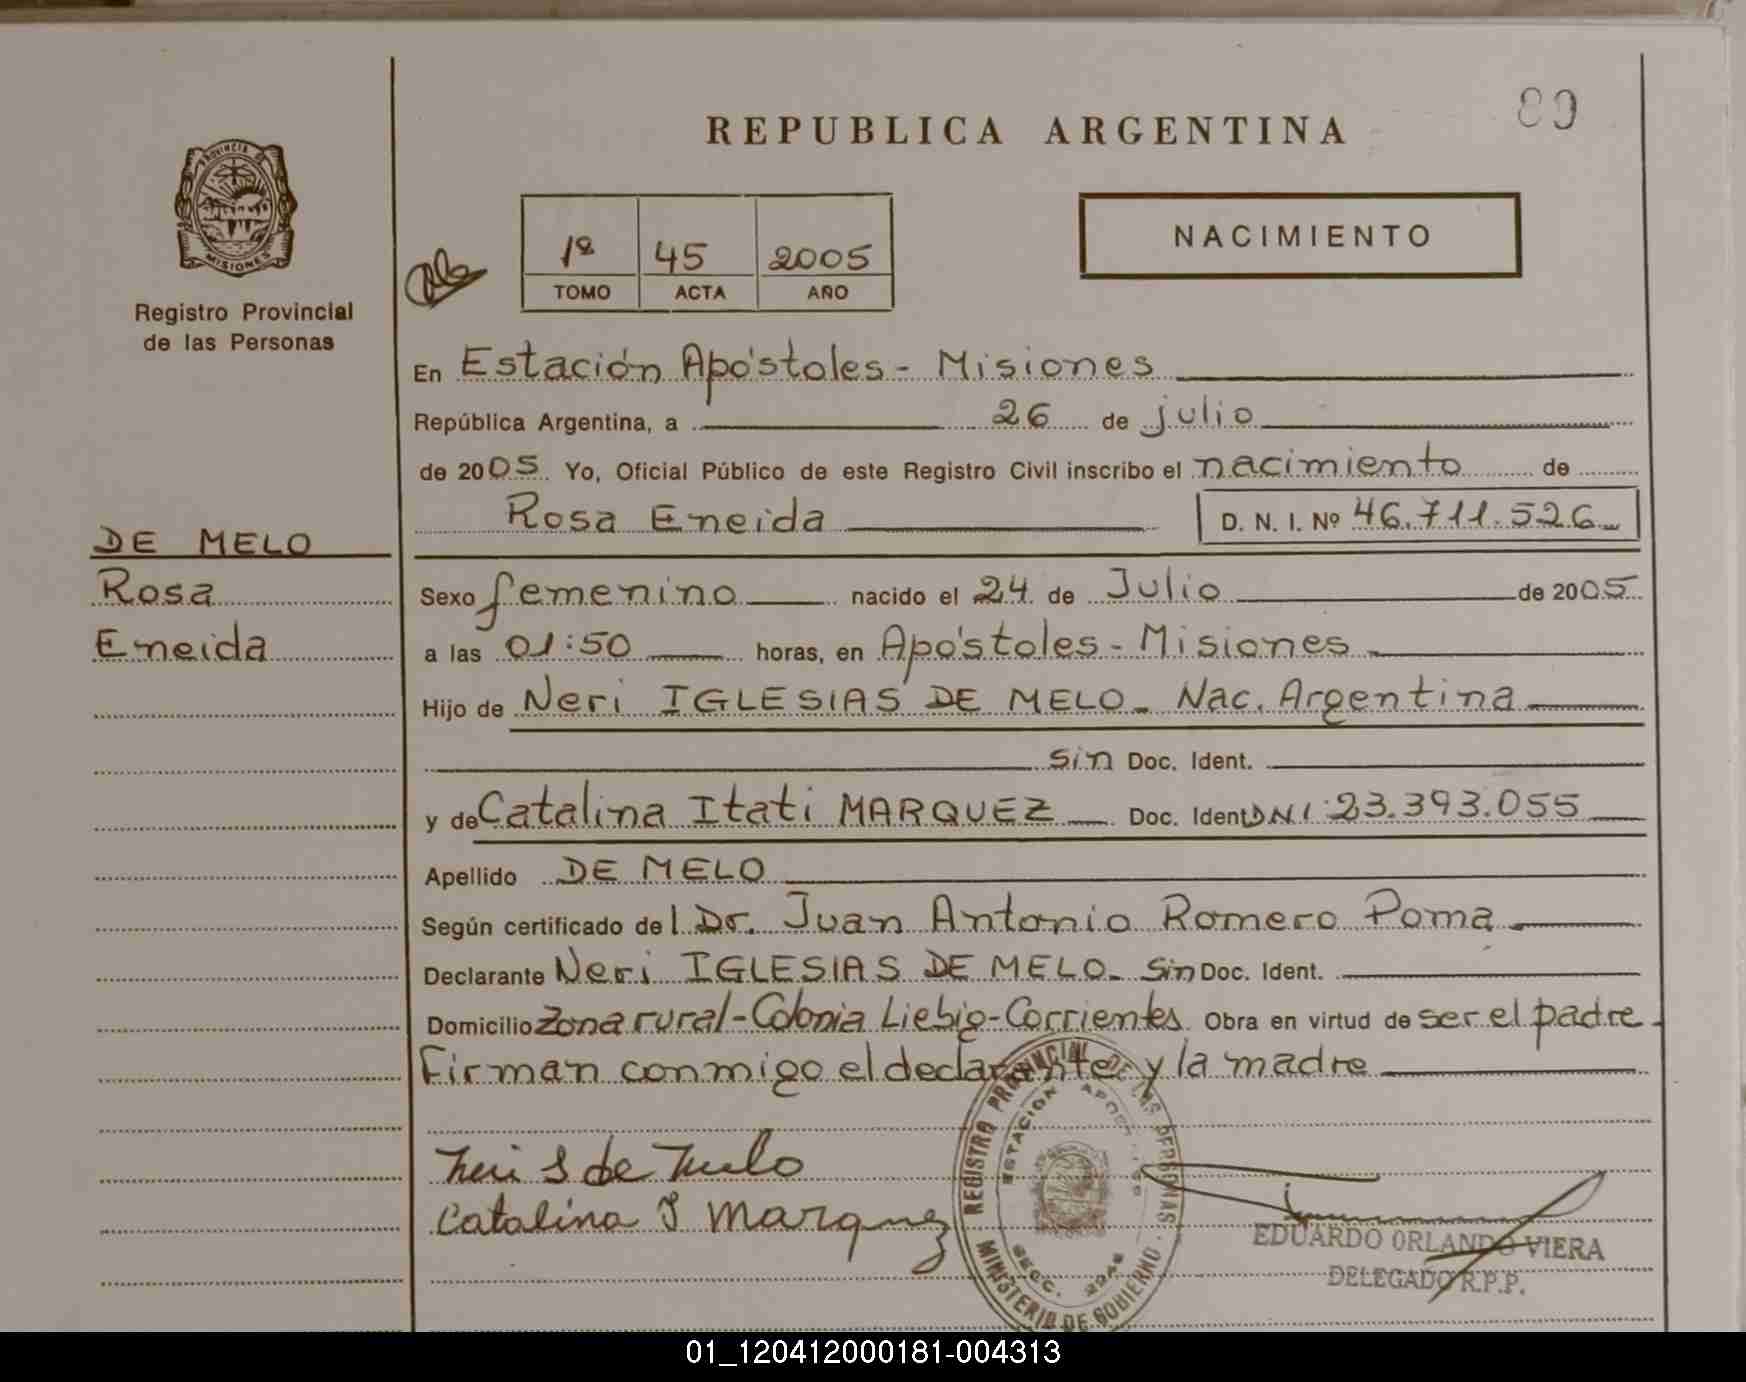 89
REPUBLICA ARGENTINA
PROVINCIA DE
MISIONES
Registro Provincial
de las Personas
1º 45 2005
TOMO ACTA AÑO
NACIMIENTO
En Estación Apóstoles - Misiones
República Argentina, a 26 de julio
de 2005 Yo, Oficial Público de este Registro Civil inscribo el nacimiento de
Rosa Eneida D. N. I. Nº 46.711.526
DE MELO
Rosa
Eneida
Sexo femenino nacido el 24 de Julio de 2005
a las 01:50 horas, en Apóstoles - Misiones
Hijo de Neri IGLESIAS DE MELO - Nac. Argentina
sin Doc. Ident.
y de Catalina Itati MARQUEZ Doc. Ident DNI: 23.393.055
Apellido DE MELO
Según certificado del Dr. Juan Antonio Romero Poma
Declarante Neri IGLESIAS DE MELO - Sin Doc. Ident.
Domicilio Zona rural - Colonia Liebig - Corrientes Obra en virtud de ser el padre.
Firman conmigo el declarante y la madre
Neri I de Melo
Catalina I Marquez
REGISTRO PROVINCIAL DE LAS PERSONAS · MINISTERIO DE GOBIERNO
ESTACION APOSTOLES
SECC.
EDUARDO ORLANDO VIERA
DELEGADO R.P.P.
01_120412000181-004313